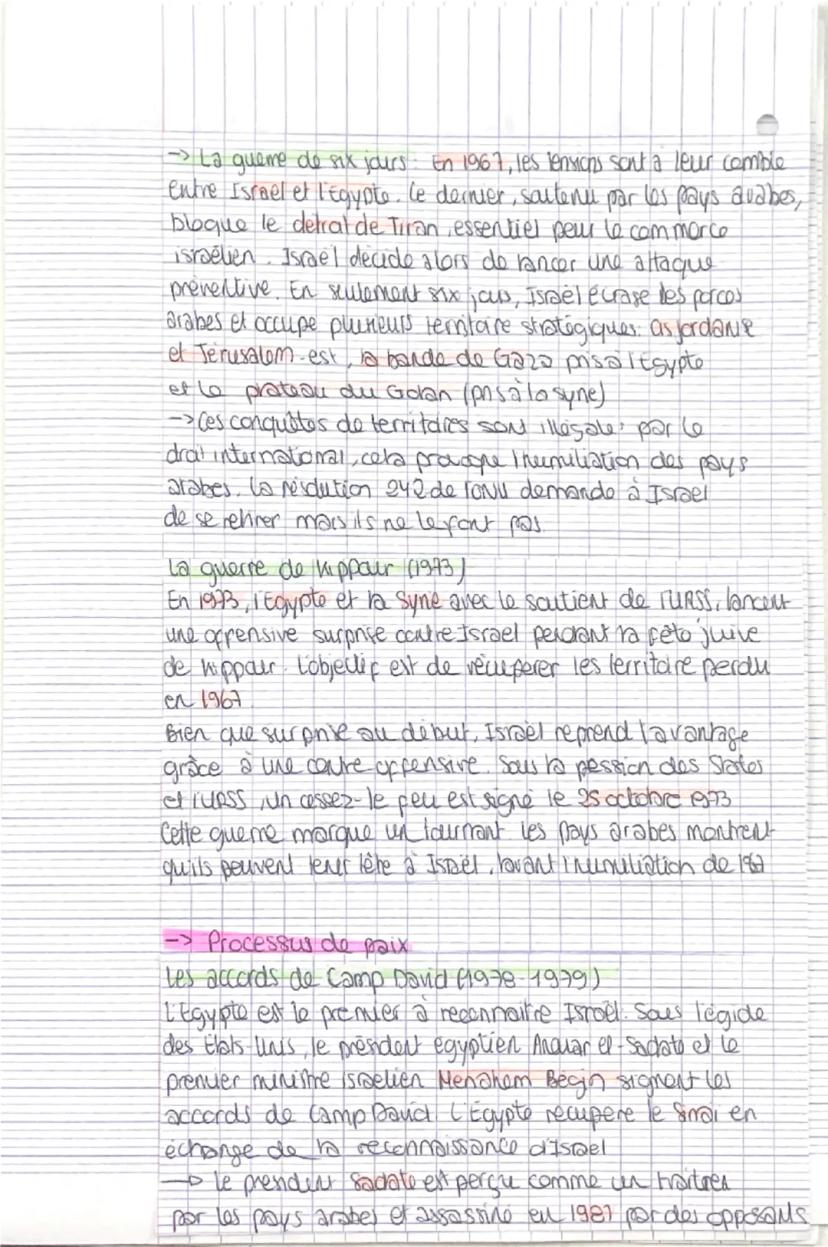 -> La guerre de six jours : En 1967, les tensions sont à leur comble
entre Israel et l'Egypte. Ce dernier, soutenu par les pays arabes,
bloque le detroit de Tiran, essentiel pour le commerce
israélien. Israël décide alors de lancer une attaque
préventive. En seulement six jours, Israël écrase les forces
arabes et occupe plusieurs territoire stratégiques:
et Jérusalem-est, la bande de Gaza pris à l'Egypte
et le plateau du Golan (pris à la syrie)
-> Ces conquêtes de territoires sont illégales par le
droit international, cela provoque l'humiliation des pays
arabes. La résolution 242 de l'ONU demande à Israel
de se retirer mais ils ne le font pas
La guerre de Kippour (1973)
En 1973, l'Egypte et la Syrie avec le soutient de l'URSS, lancent
une offensive surprise contre Israel pendant la fête juive
de Kippour. L'objectif est de récuperer les territoire perdu
en 1967.
Bien que surprise au début, Israël reprend l'avantage
grâce à une contre offensive. Sous la pession des States
et l'URSS, un cessez-le feu est signé le 25 octobre 1973
Cette guerre marque un tournant les pays arabes montrent
qu'ils peuvent tenir tête à Israël, lavant l'humiliation de 1967
-> Processus de paix
Les accords de Camp David (1978-1979)
L'Egypte est le premier à reconnaitre Israël. Sous l'égide
des Etats Unis, le président égyptien Anouar el-Sadate et le
premier ministre israelien Menahem Begin signent les
accords de Camp David. L'Egypte récupere le Sinai en
échange de la reconnaissance d'Israel
-> le président Sadate est perçu comme un
par les pays arabes et assassiné en 1981 par des opposants